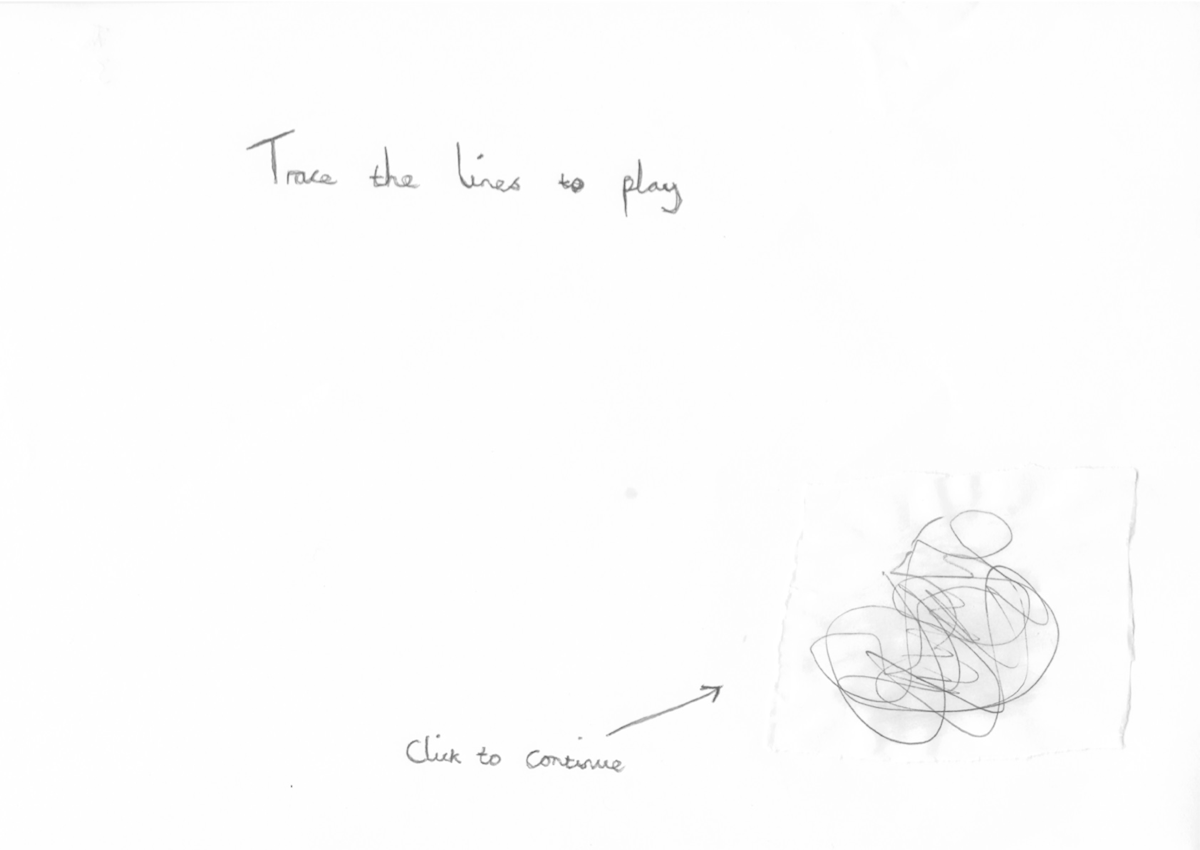 Trace the lines to play
Click to continue